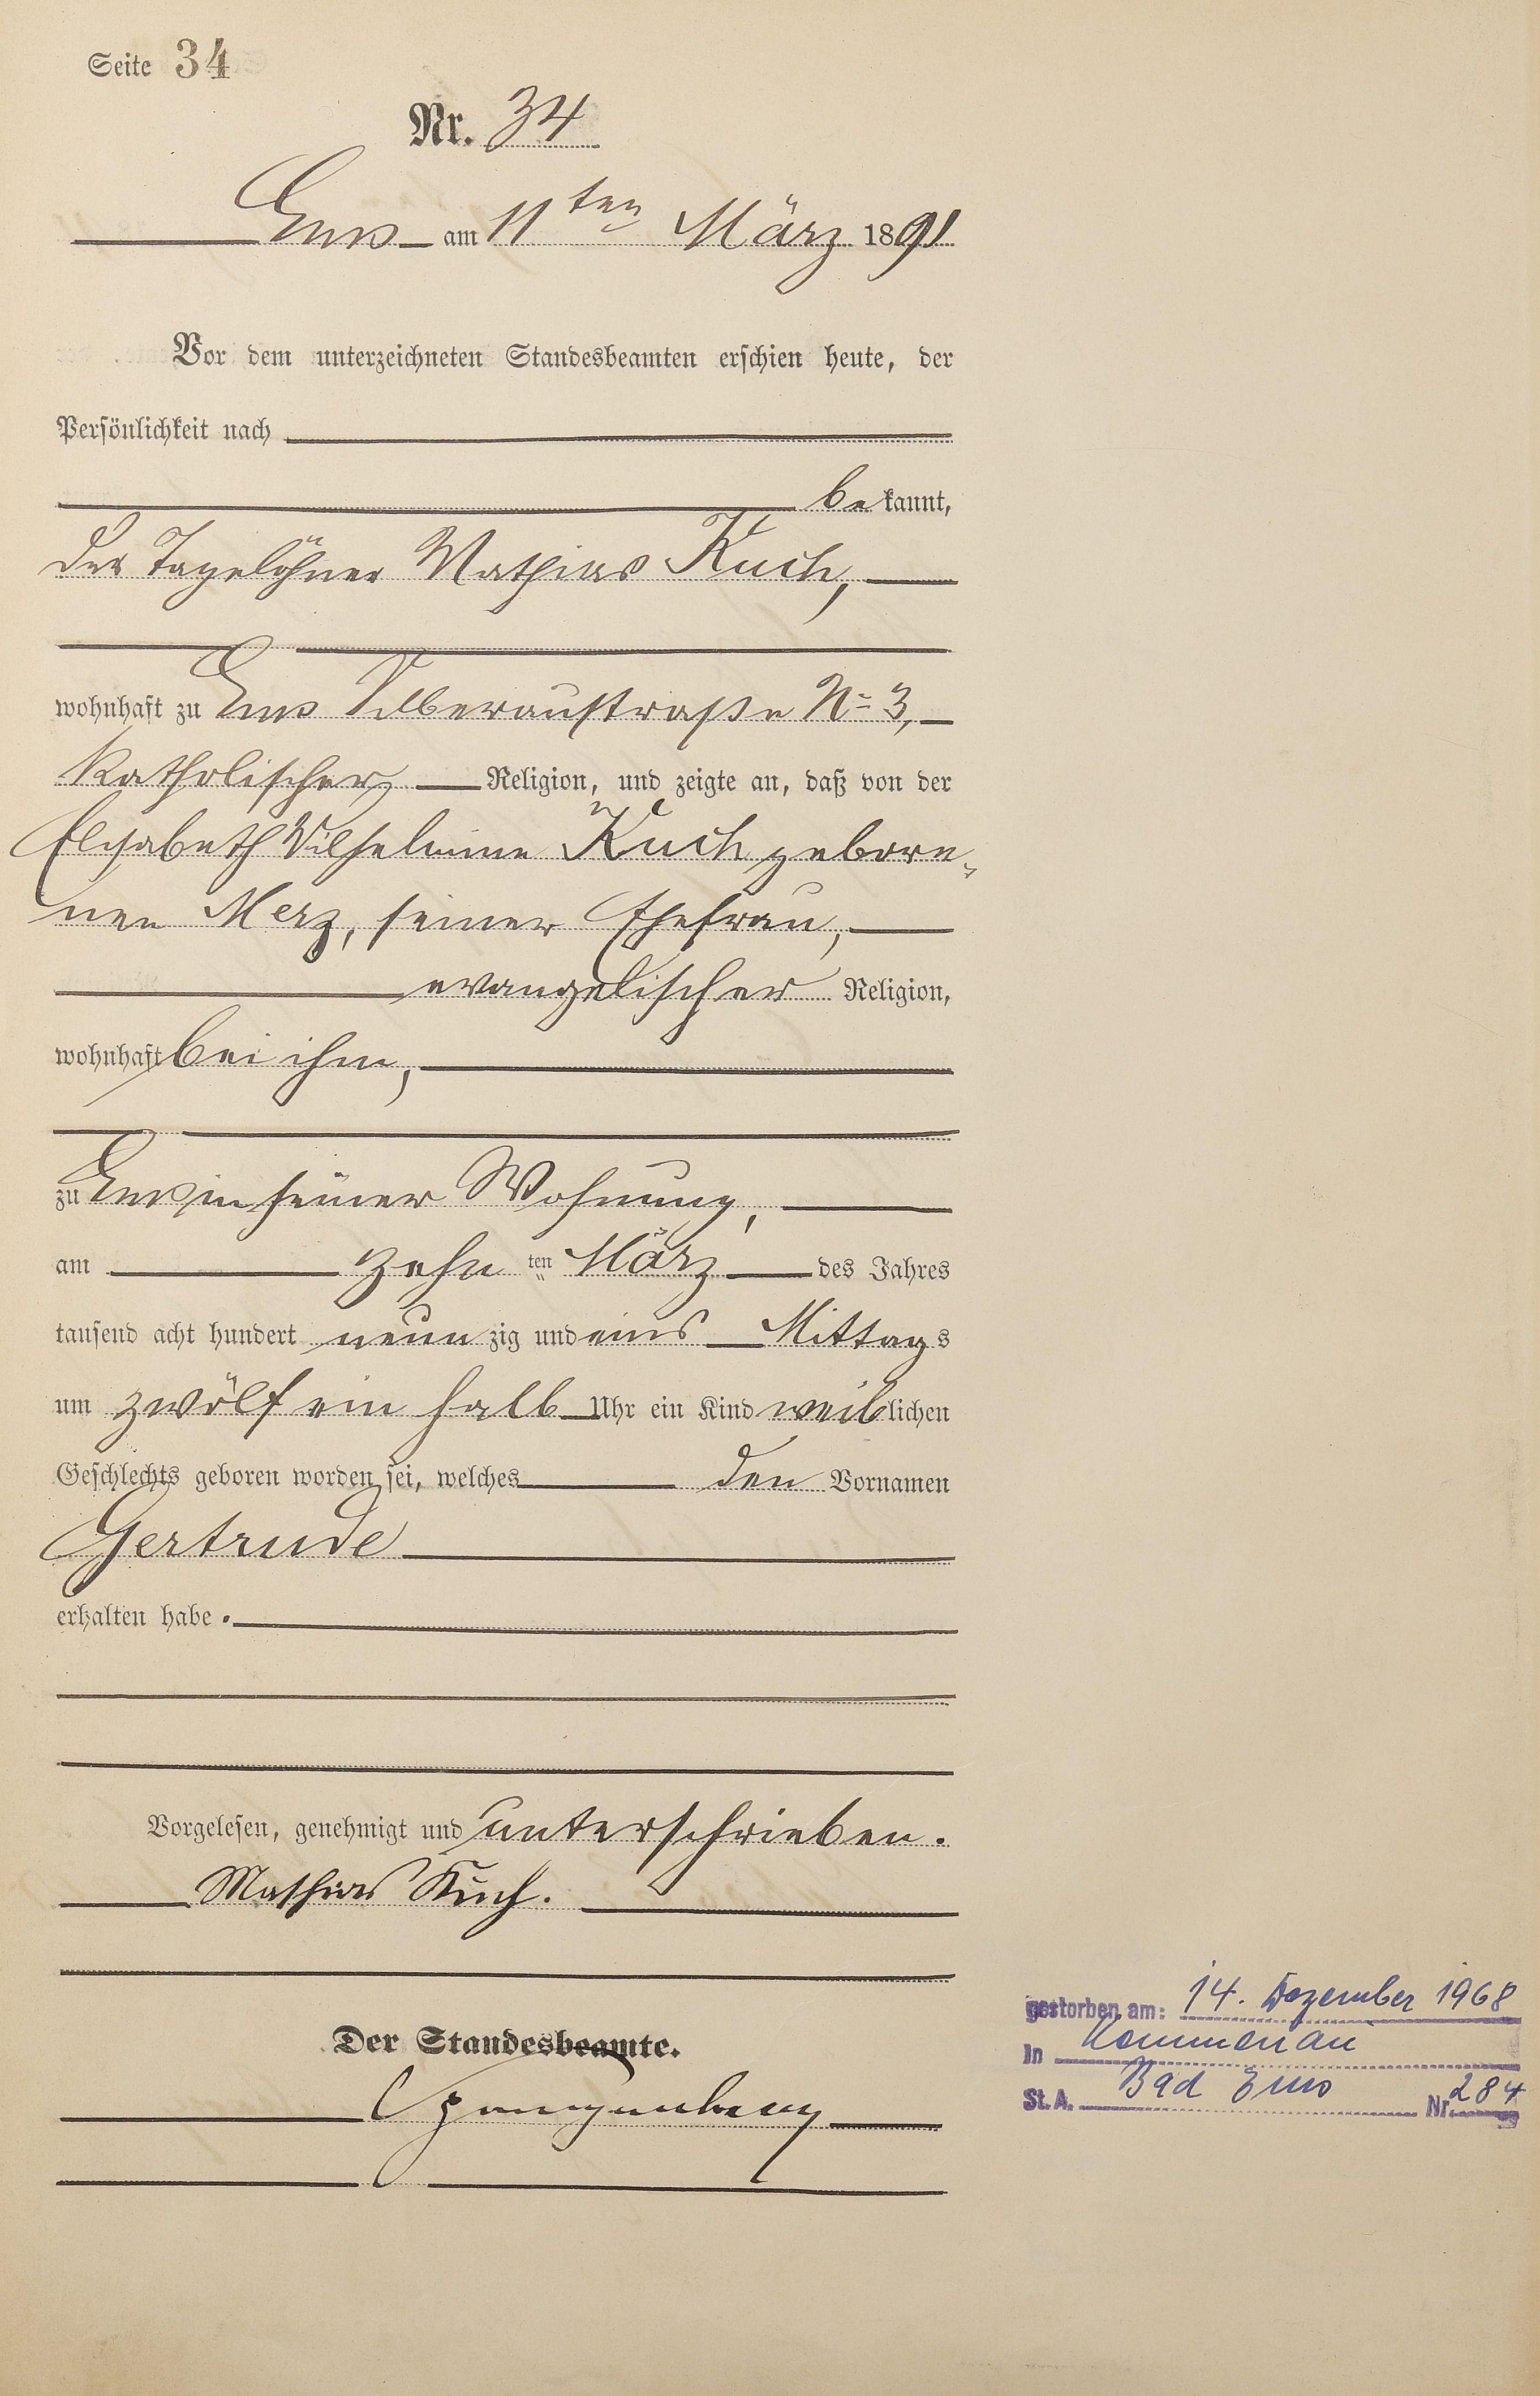 Seite 34
Nr. 34
Ems am 11ten März 1891
Vor dem unterzeichneten Standesbeamten erschien heute, der
Persönlichkeit nach
bekannt,
der Tagelöhner Mathias Kuch,
wohnhaft zu Ems Silberaustraße No 3,
katholischer Religion, und zeigte an, daß von der
Elisabeth Wilhelmine Kuch gebore-
nen Merz, seiner Ehefrau,
evangelischer Religion,
wohnhaft bei ihm,
zu Ems in seiner Wohnung,
am zehn ten März des Jahres
tausend acht hundert neunzig und eins Mittags
um zwölf ein halb Uhr ein Kind weiblichen
Geschlechts geboren worden sei, welches den Vornamen
Gertrude
erhalten habe.
Vorgelesen, genehmigt und unterschrieben.
Mathias Kuch.
Der Standesbeamte.
Spangenberg
gestorben am: 14. Dezember 1968
In Kemmenau
St. A. Bad Ems Nr. 284